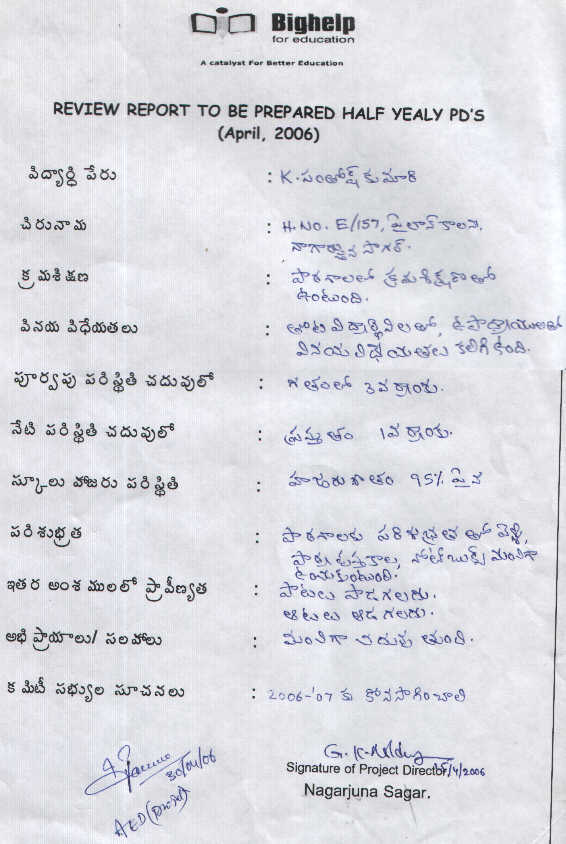 Bighelp
for education
A catalyst For Better Education
REVIEW REPORT TO BE PREPARED HALF YEALY PD'S
(April, 2006)
విద్యార్థి పేరు : K. సంతోష్ కుమారి
చిరునామ : H.NO. E/157, పైలాన్ కాలని,
నాగార్జున సాగర్.
క్రమశిక్షణ : పాఠశాలలో క్రమశిక్షణతో
ఉంటుంది.
వినయ విధేయతలు : తోటి విద్యార్థినిలతో, ఉపాధ్యాయులతో
వినయ విధేయతలు కలిగి ఉంది.
పూర్వపు పరిస్థితి చదువులో : గతంలో 3వ ర్యాంకు.
నేటి పరిస్థితి చదువులో : ప్రస్తుతం 1వ ర్యాంకు.
స్కూలు హాజరు పరిస్థితి : హాజరుశాతం 95% పైన
పరిశుభ్రత : పాఠశాలకు పరిశుభ్రతతో వెళ్ళి,
పాఠ్య పుస్తకాల, నోట్ బుక్స్ మంచిగా
ఉంచుకుంటుంది.
ఇతర అంశములలో ప్రావీణ్యత : పాటలు పాడగలదు.
ఆటలు ఆడగలదు.
అభిప్రాయాలు/ సలహాలు : మంచిగా చదువుతుంది.
కమిటీ సభ్యుల సూచనలు : 2006-'07 కు కొనసాగించాలి
30/04/06
G. K. Reddy
Signature of Project Director /4/2006
Nagarjuna Sagar.